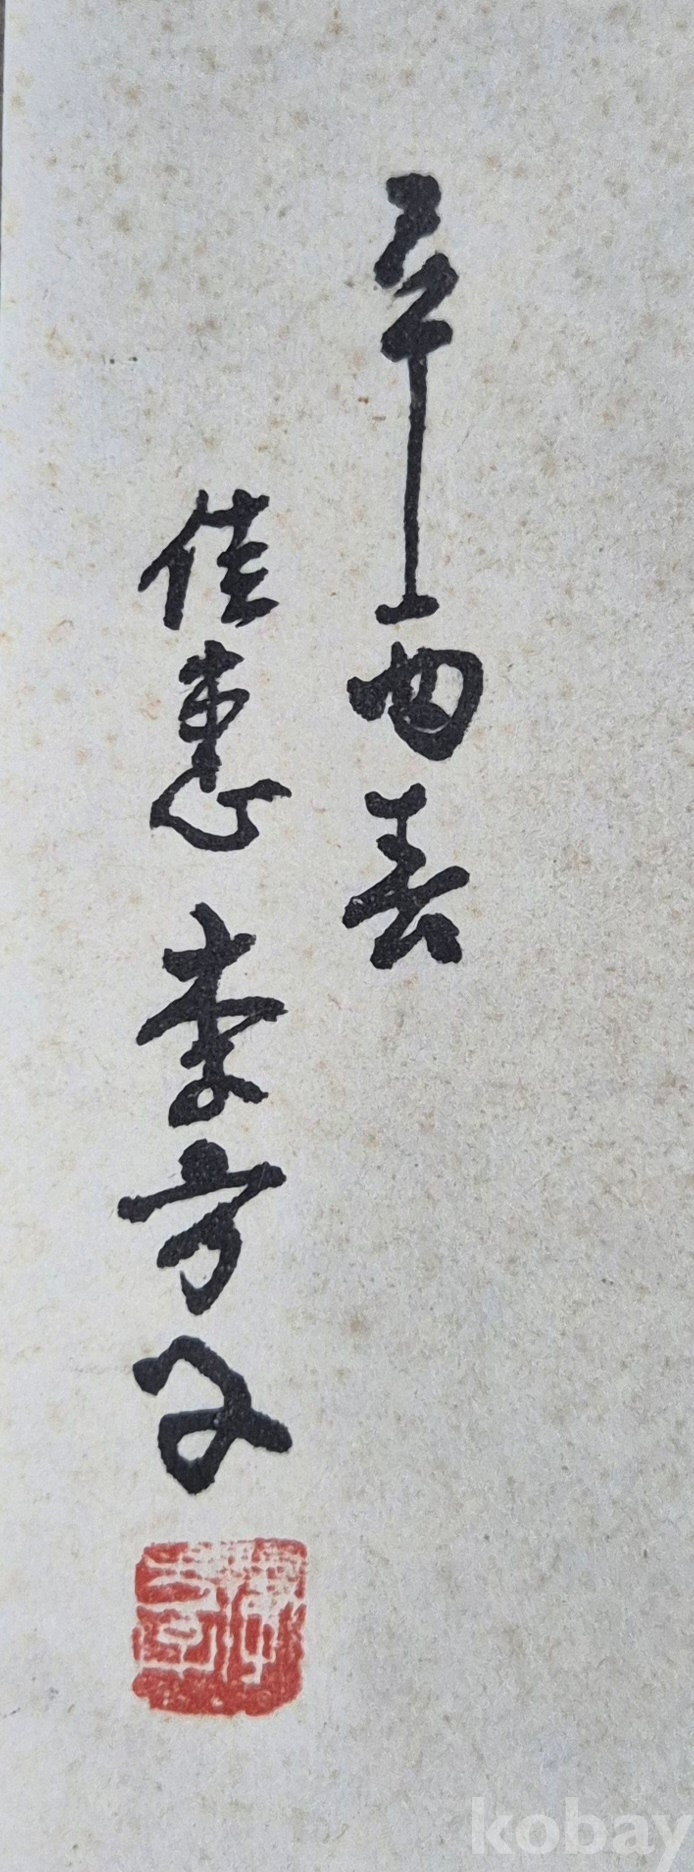 辛酉春
佳惠 李方子
kobay